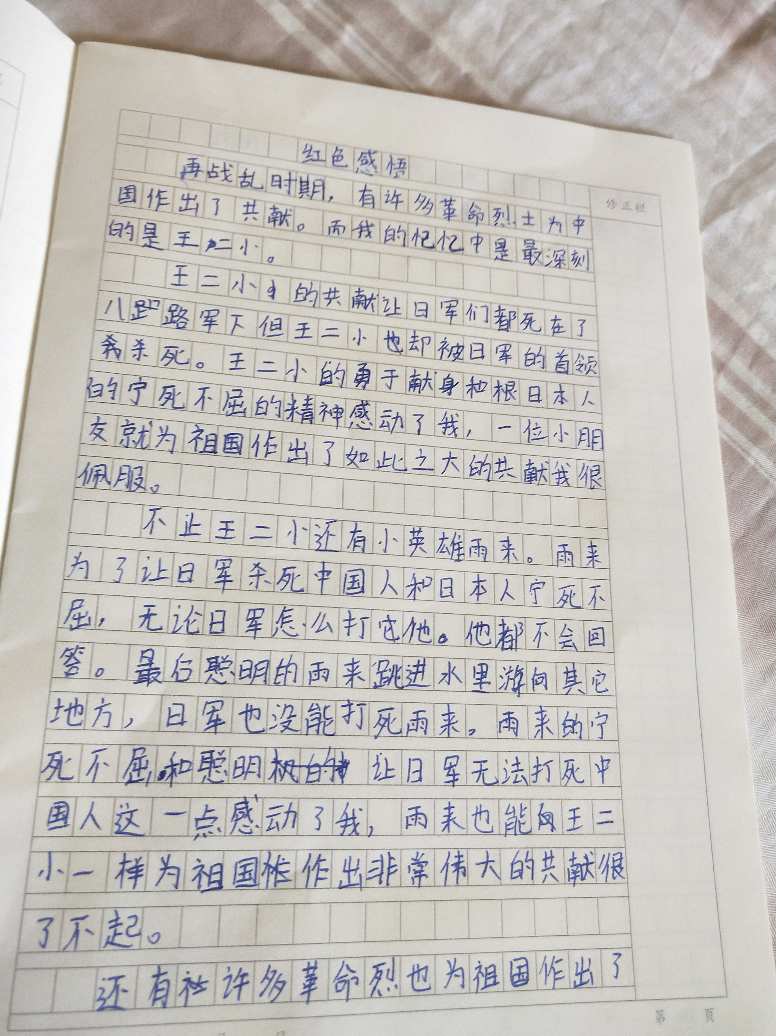 红色感悟
修正栏
再战乱时期，有许多革命烈士为中
国作出了共献。而我的记忆中是最深刻
的是王二小。
王二小的共献让日军们都死在了
八路军下但王二小也却被日军的首领
杀死。王二小的勇于献身和根日本人
的宁死不屈的精神感动了我，一位小朋
友就为祖国作出了如此之大的共献我很
佩服。
不止王二小还有小英雄雨来。雨来
为了让日军杀死中国人和日本人宁死不
屈，无论日军怎么打他。他都不会回
答。最后聪明的雨来跳进水里游向其它
地方，日军也没能打死雨来。雨来的宁
死不屈和聪明让日军无法打死中
国人这一点感动了我，雨来也能向王二
小一样为祖国作出非常伟大的共献很
了不起。
还有许多革命烈也为祖国作出了
第 页